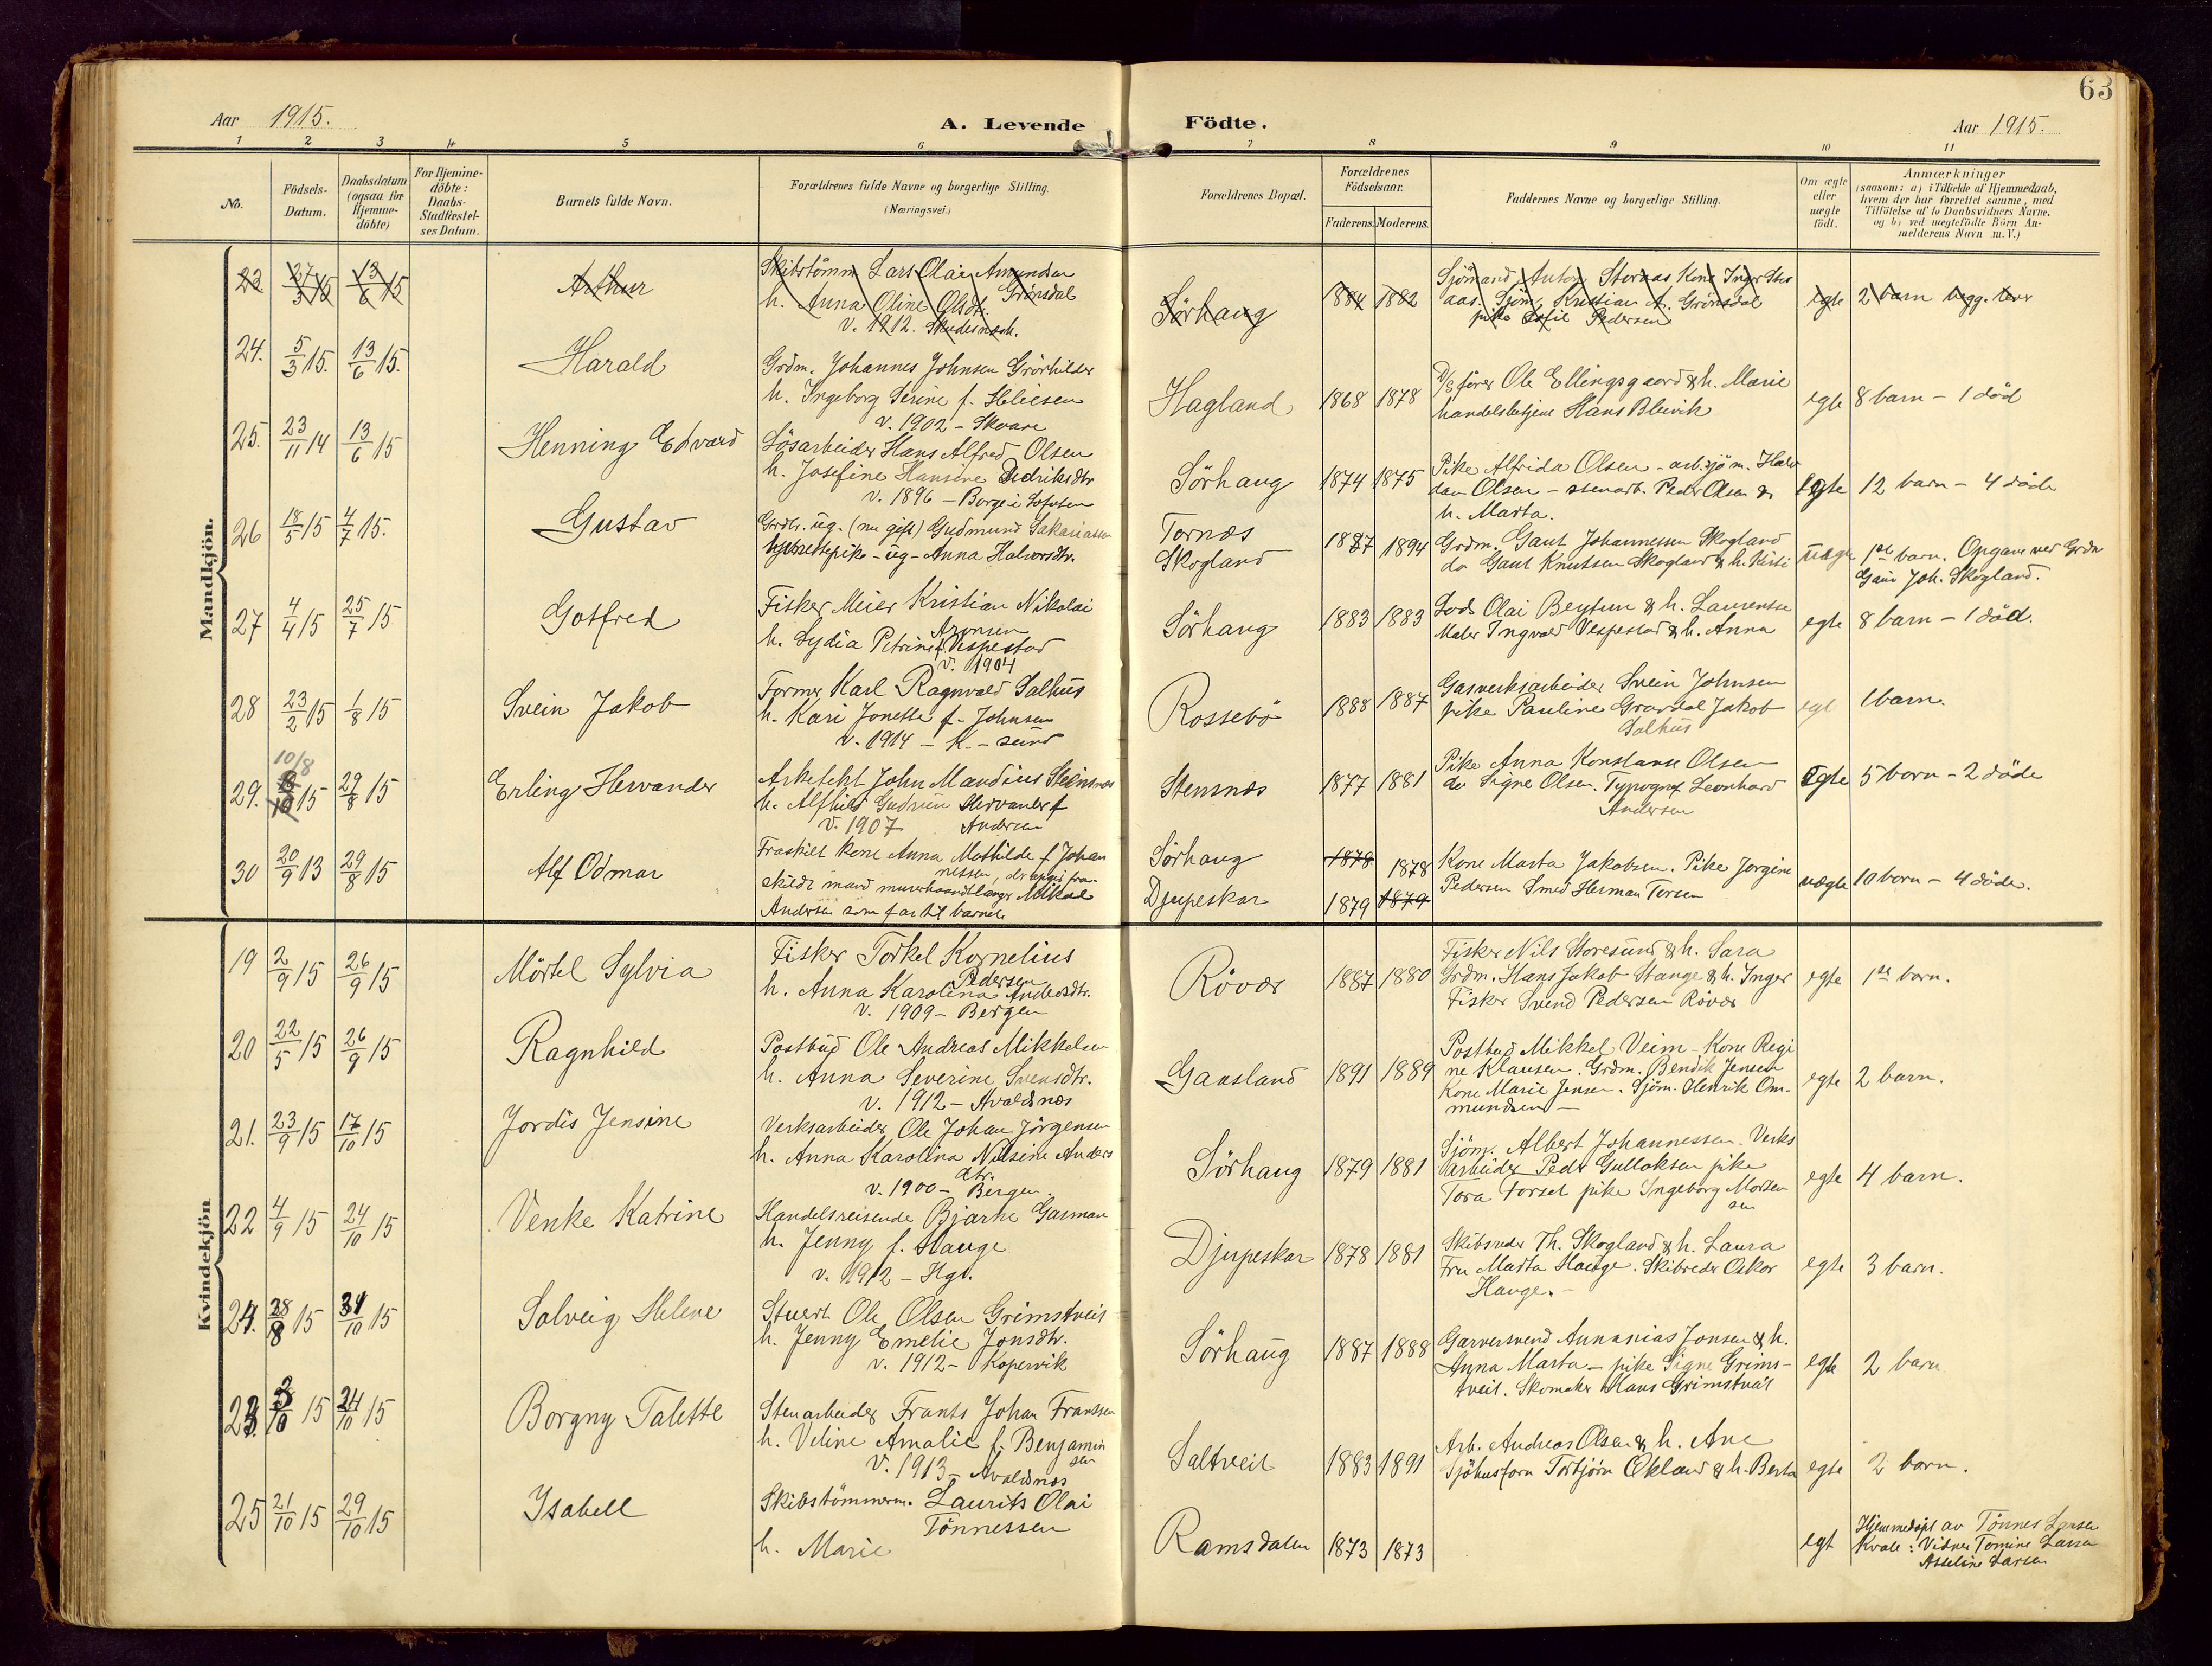 63
Aar 1915.
A. Levende Födte.
Aar 1915.
1 2 3 4 5 6 7 8 9 10 11
No.
Födsels-
Datum.
Daabsdatum
(ogsaa for
Hjemme-
döbte)
For Hjemme-
döbte:
Daabs-
Stadfæstel-
ses Datum.
Barnets fulde Navn.
Forældrenes fulde Navne og borgerlige Stilling.
(Næringsvei.)
Forældrenes Bopæl.
Forældrenes
Födselsaar.
Faderens. Moderens.
Faddernes Navne og borgerlige Stilling.
Om ægte
eller
uægte
födt.
Anmærkninger
(saasom: a) i Tilfælde af Hjemmedaab,
hvem der har forrettet samme, med
Tilföielse af to Daabsvidners Navne,
og b) ved uægtefödte Börn An-
melderens Navn m. V.)
Mandkjön.
23 27/3 15 13/6 15 Arthur
Skibstömm Lars Olai Amundsen
Grönsdal
h. Anna Oline Olsdt.
v. 1912. Skudesnæsh.
Sörhaug 1884 1882
Sjömand Anton Stornas Kone Inger Stor
aas. Sjöm. Kristian A. Grönsdal
pike Sofie Pedersen
egte 2 barn begg. lever
24. 5/3 15. 13/6 15. Harald
Grdm. Johannes Johnsen Grörhilder
h. Ingeborg Serine f. Heliesen
v. 1902 - Skaare
Hagland 1868 1878
D/s förer Ole Ellingsgaard & h. Marie
handelsbetjent Hans Bleivik
egte 8 barn - 1 död
25. 23/11 14 13/6 15 Henning Edvard
Lösarbeider Hans Alfred Olsen
h. Josefine Hansine Didriksdtr
v. 1896 - Borge i Lofoten
Sörhaug 1874 1875
Pike Alfrida Olsen - arb. sjöm. Halv
dan Olsen - stenarb. Peder Olsen &
h. Marta.
egte 12 barn - 4 döde
26 18/5 15 4/7 15. Gustav
Grdbr. ug. (nu gift) Gudmund Sakariassen
hjelpreisepike - ug - Anna Halvorsdtr.
Tornæs
Skogland
1887 1894
Grdm. Gaut Johannessen Skogland
do Gaut Knutsen Skogland & h. Kisti
uegte 1ste barn. Opgave ved Grdm
Gaut Joh. Skogland.
27 4/4 15 25/7 15 Gotfred
Fisker Meier Kristian Nikolai
Aronsen
h. Lydia Petrine f. Vespestad
v. 1904
Sörhaug 1883 1883
Lods Olai Beytun & h. Laurentse
Maler Ingvald Vespestad & h. Anna
egte 8 barn - 1 död.
28 23/2 15 1/8 15 Svein Jakob
Former Karl Ragnvald Salhus
h. Kari Jonette f. Johnsen
v. 1914 - K. - sund
Rossebö 1888 1887
Gasverksarbeider Svein Johnsen
pike Pauline Gravdal Jakob
Salhus
egt 1 barn.
10/8
29. 15 29/8 15 Erling Hervander
Arketekt John Mandius Stensnæs
h. Alfhild Gudrun Hervander f
v. 1907 Andersen
Stensnæs 1877 1881
Pike Anna Konstanse Olsen
do Signe Olsen. Typograf Leonhard
Andersen
Egte 5 born - 2 döde
30 20/9 13 29/8 15 Alf Odmar
Fraskilt kone Anna Mathilde f. Johan
nessen, der opgir fra-
skildt mand murerhaandtlanger Mikal
Andersen som far til barnet.
Sörhaug 1878 1878
Djupeskar 1879 1879
Kone Marta Jakobsen. Pike Jorgine
Pedersen Smed Herman Torsen
uægte 10 born - 4 döde.
Kvindekjön
19 2/9 15 26/9 15 Mörtel Sylvia
Fisker Torkel Kornelius
Pedersen
h. Anna Karolina Andersdtr.
v. 1909 - Bergen
Rövær 1887 1880
Fisker Nils Storesund & h. Sara
Grdm. Hans Jakob Stange & h. Inger
Fisker Svend Pedersen Rövær
egte 1ste born.
20 22/5 15 26/9 15 Ragnhild
Postbud Ole Andreas Mikkelsen
h. Anna Severine Svensdtr.
v. 1912 - Avaldsnæs
Gaasland 1891 1889
Postbud Mikkel Veim - Kone Regi
ne Klausen. Grdm. Bendik Jensen
Kone Marie Jensen. Sjöm. Henrik Om-
mundsen -
egte 2 barn.
21. 23/9 15 17/10 15 Jordis Jensine
Verksarbeider Ole Johan Jörgensen
h. Anna Karolina Nilsine Anders
dtr.
v. 1900 - Bergen.
Sörhaug 1879 1881
Sjöm. Albert Johannessen. Verks
arbeider Peder Gulloksen pike
Tora Torset pike Ingeborg Morten
sen
egte 4 barn.
22 4/9 15 24/10 15 Venke Katrine
Handelsreisende Bjarne Gasman
h. Jenny f. Hauge
v. 1912 - Hgs.
Djupeskar 1878 1881
Skibsreder Th. Skogland & h. Laura
Fru Marta Hauge. Skibreder Oskar
Hauge. -
egte 3 barn.
24. 28/8 15 31/10 15 Solveig Helene
Stuert Ole Olsen Grimstveit
h. Jenny Emelie Jonsdtr.
v. 1912 - Kopervik
Sörhaug 1887 1888
Garversvend Annanias Jonsen & h.
Anna Marta - pike Signe Grims-
tveit. Skomaker Hans Grimstveit
egte 2 barn
23. 3/10 15 24/10 15 Borgny Talette
Stenarbeider Frants Johan Franssen
h. Veline Amalie f. Benjamin
sen
v. 1913 - Avaldsnæs
Saltveit 1883 1891
Arb. Andreas Olsen & h. Ane
Sjöhusform Torbjörn Økland & h. Berta
egte 2 born.
25 21/10 15 29/10 15 Isabell
Skibstömmerm. Laurits Olai
Tönnessen
h. Marie
Ramsdalen 1873 1873
egt Hjemmedöpt av Tönnes Larsen
Kvale: Vidner Tomine Larsen
Asseline Larsen